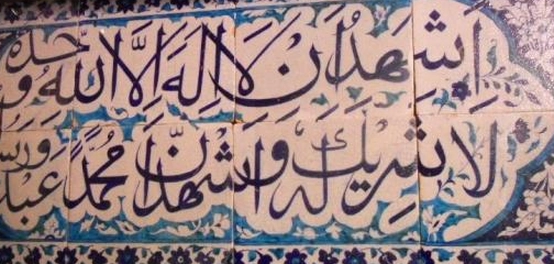 اَشْهَدُ اَنْ لَا اِلٰهَ اِلَّا اللهُ وَحْدَهُ
لَا شَرِيْكَ لَهُ وَاَشْهَدُ اَنَّ مُحَمَّدًا